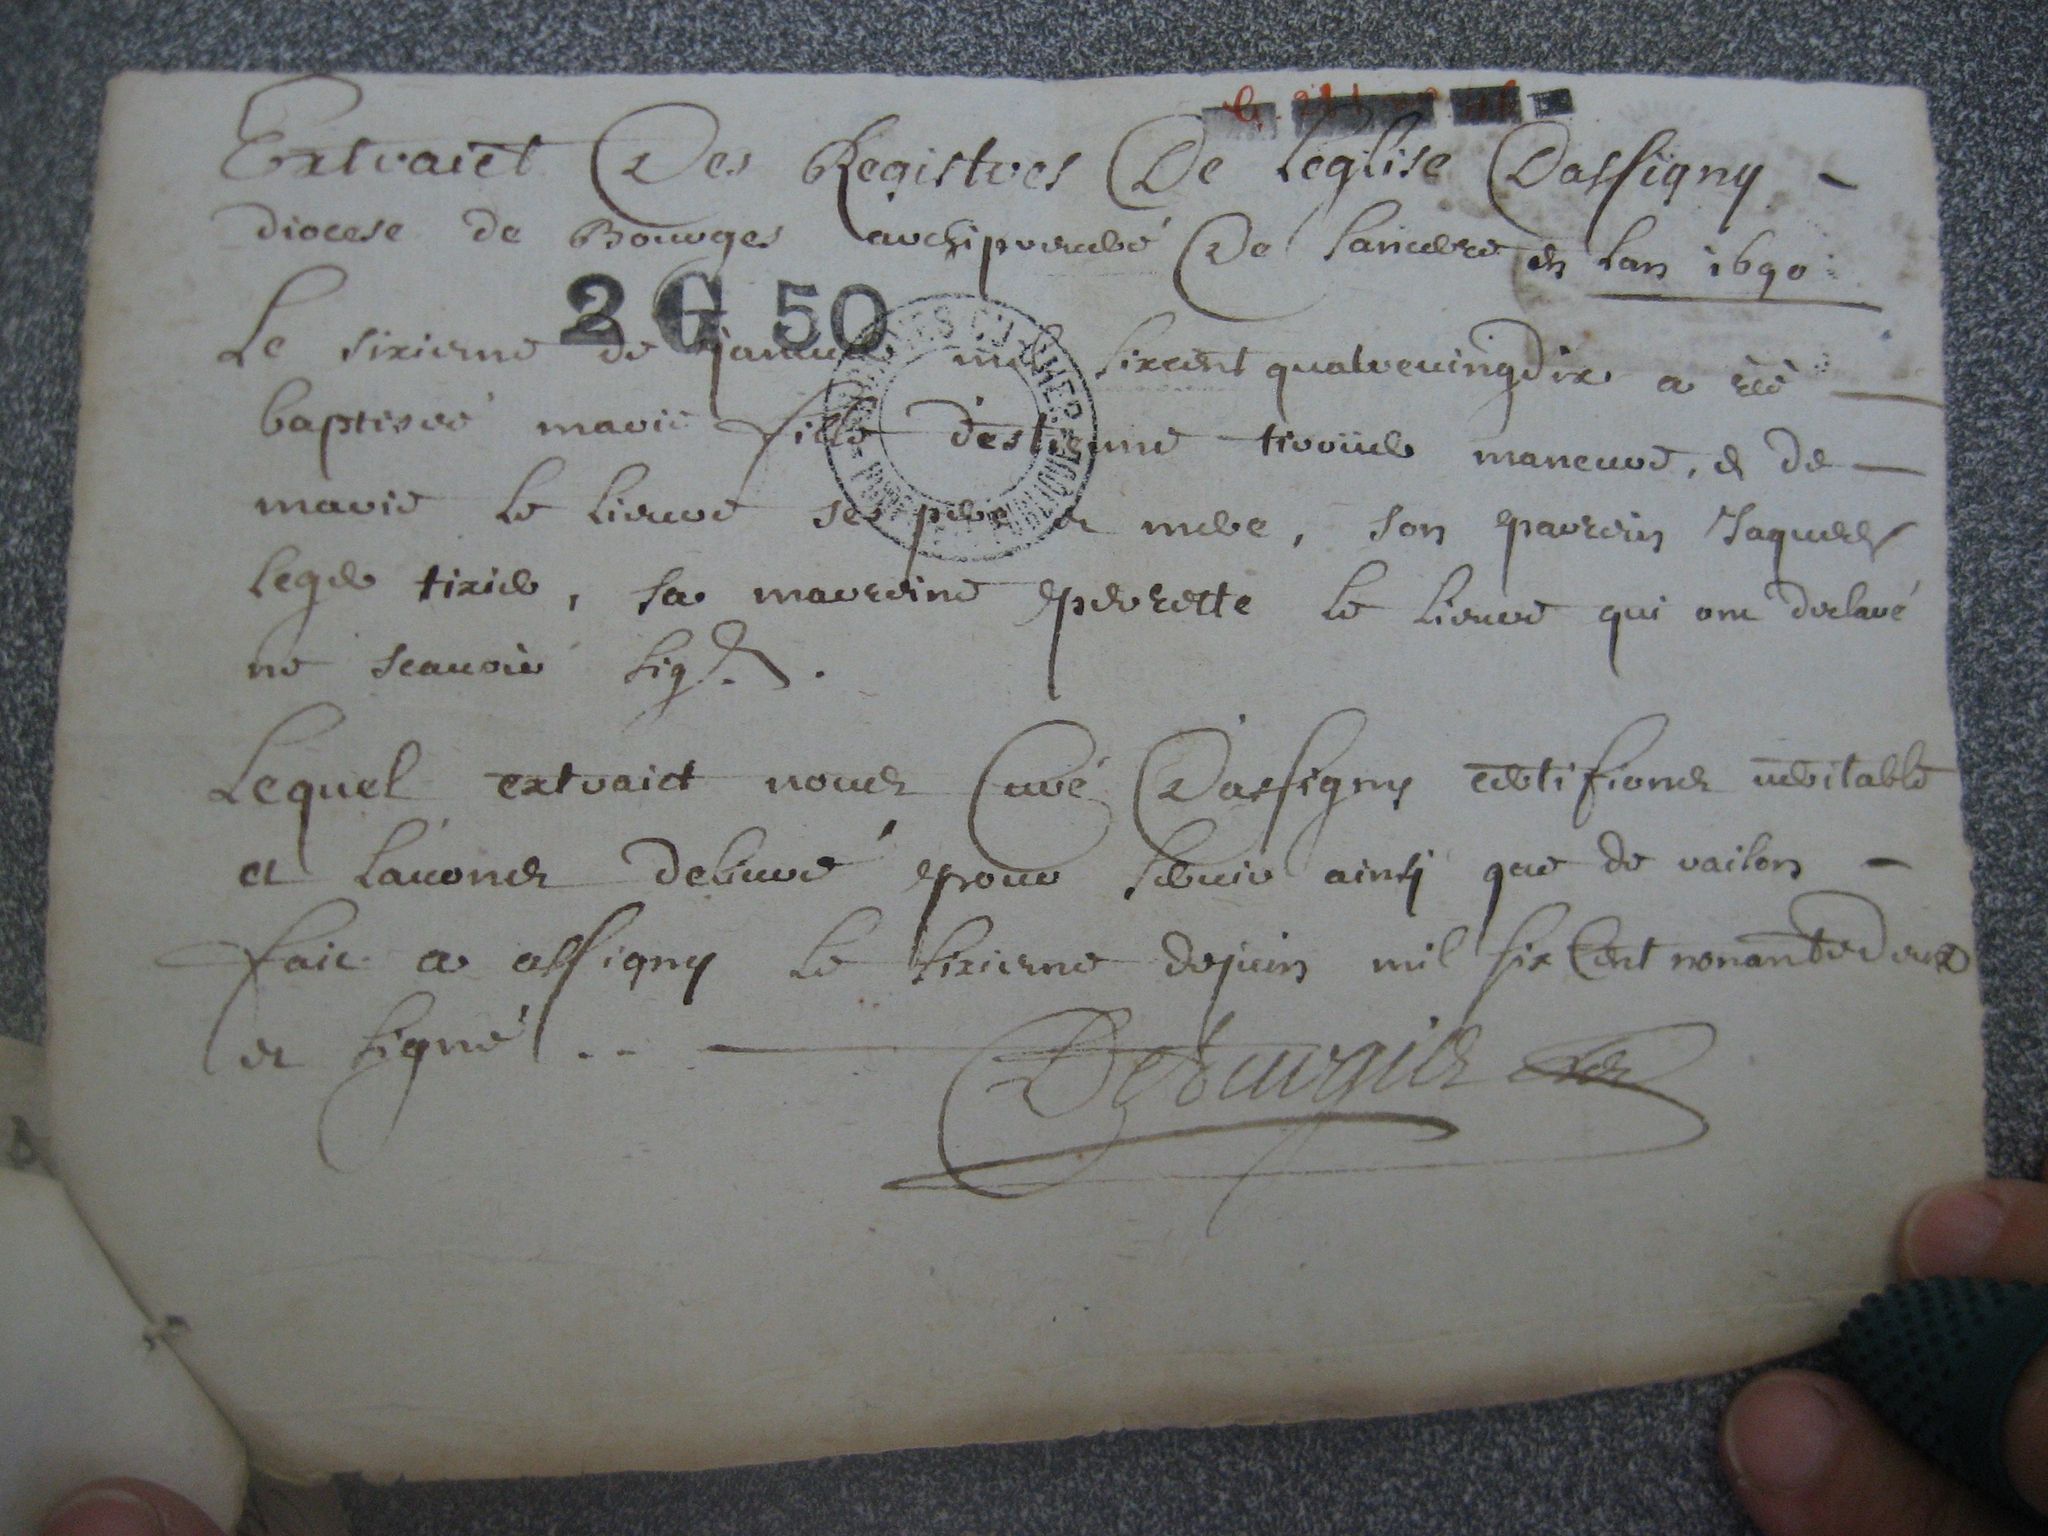 Extraict Des Registres De Leglise Dassigny -
diocese de Bourges archiprerabé De Sancerre en Lan 1690
2 G 50
Le sixieme de januier mil sixcent quatreuingdix a eté
baptiseé marie fille d'estienne manœure, et de
marie le lieure ses pere et mere, son parrein Jaques
leger tixier, sa marreine perrette le lieure qui ont declaré
ne scauoir sig.
Lequel extraict nous Curé Dassigny certifions ueritable
et Lauons deliuré pour seruir ainsy que de raison -
fait a assigny le sixieme dejuin mil six Cent nonantedeux
et signé